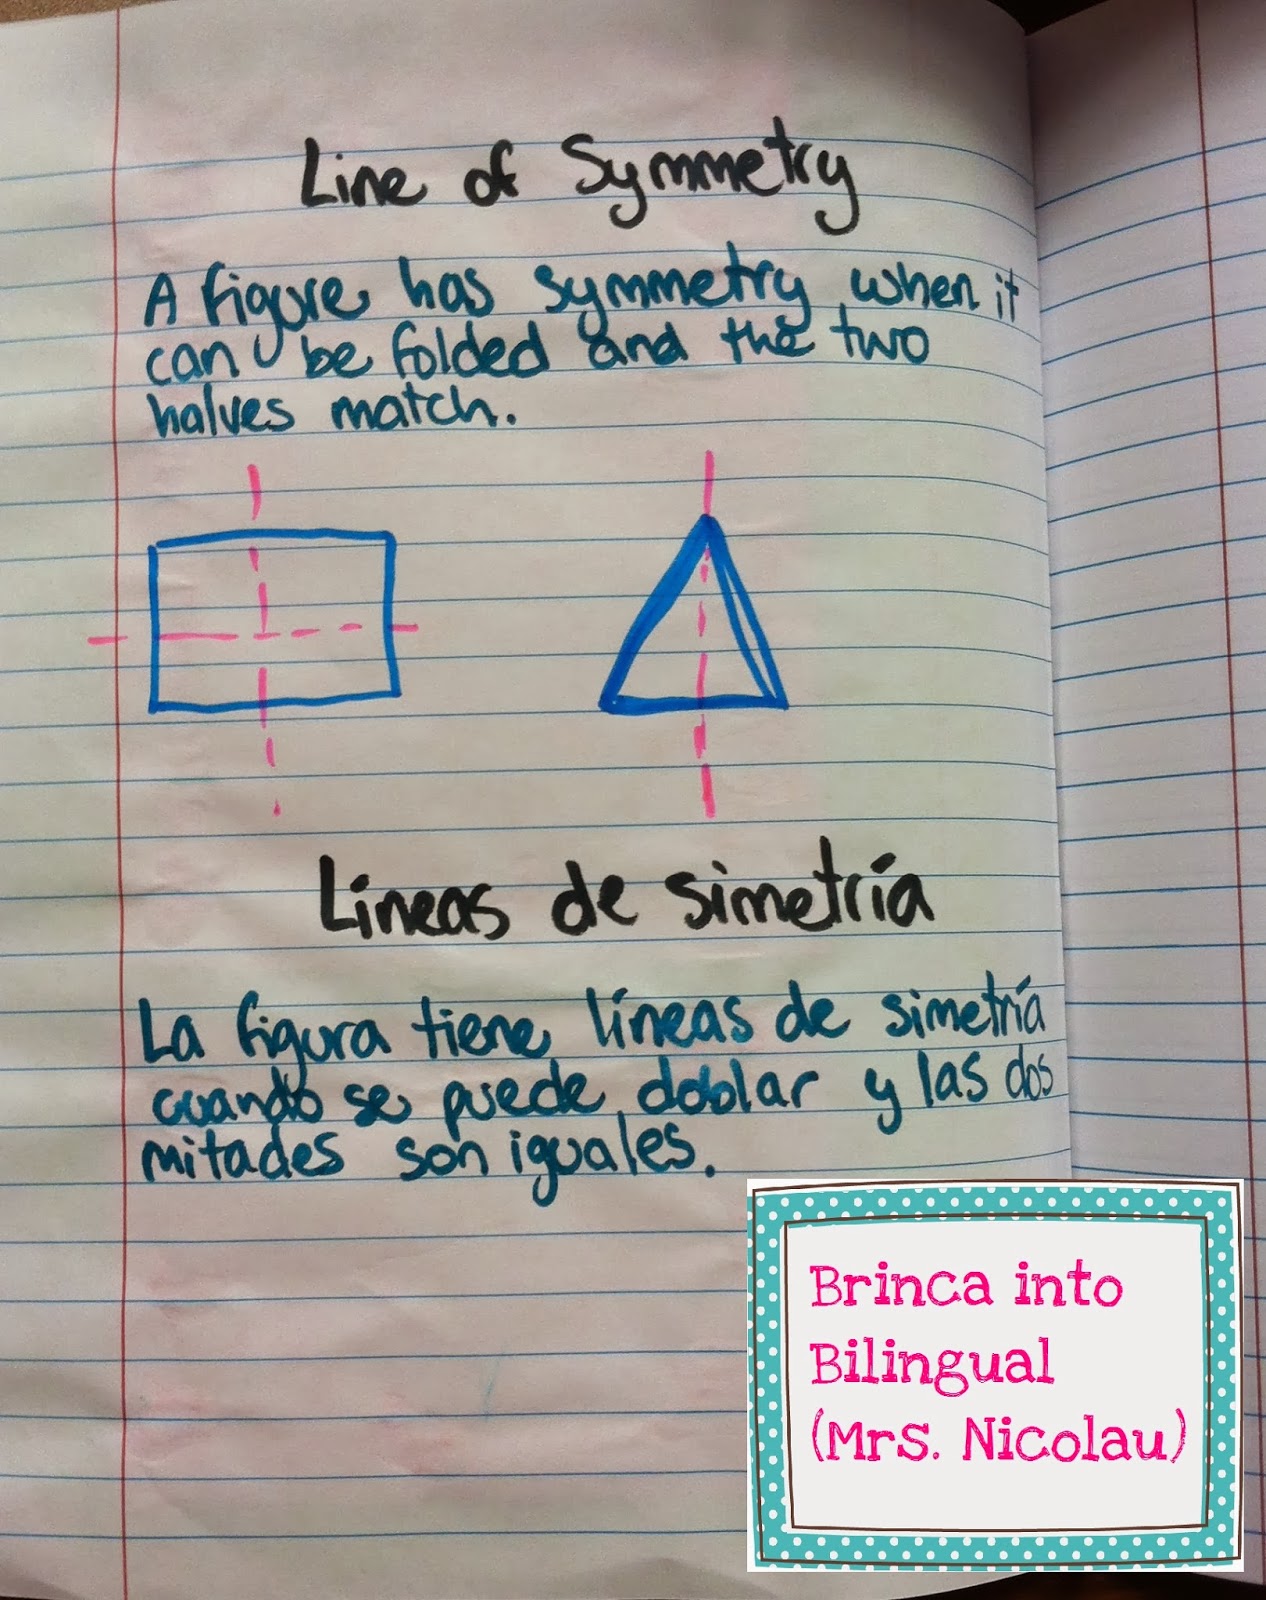 Line of Symmetry
A figure has symmetry when it
can be folded and the two
halves match.
Líneas de simetría
La figura tiene líneas de simetría
cuando se puede doblar y las dos
mitades son iguales.
Brinca into
Bilingual
(Mrs. Nicolau)